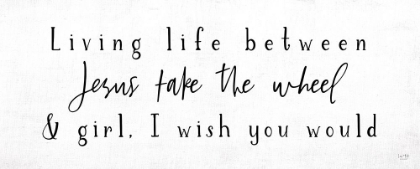 Living life between
Jesus take the wheel
& girl, I wish you would